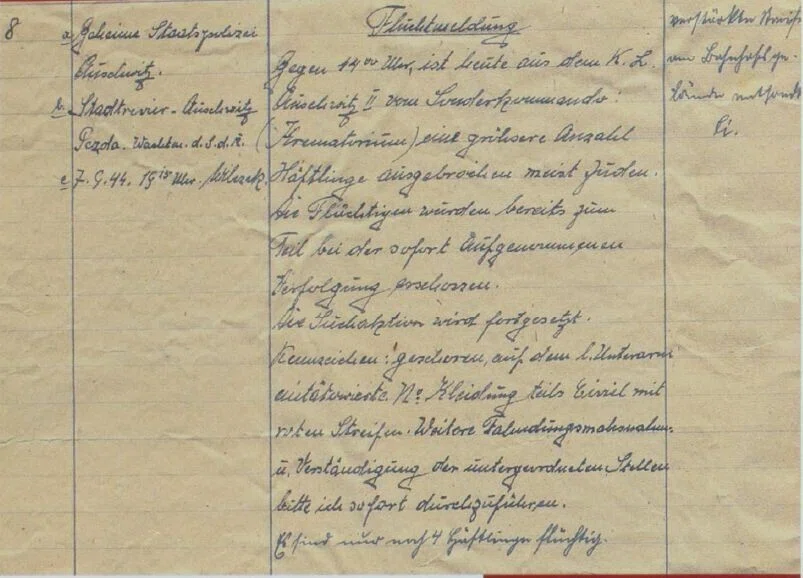 8
a, Geheime Staatspolizei
Auschwitz.
b. Stadtrevier-Auschwitz
Pezda. Wachtm. d. S. d. R.
c 7. 9. 44. 19 15 Uhr.
Fluchtmeldung
Gegen 14 00 Uhr, ist heute aus dem K. L.
Auschwitz II vom Sonderkommando:
(Krematorium) eine grössere Anzahl
Häftlinge ausgebrochen meist Juden.
Die Flüchtigen wurden bereits zum
Teil bei der sofort Aufgenommenen
Verfolgung erschossen.
Die Suchaktion wird fortgesetzt.
Kennzeichen: geschoren, auf dem l. Unterarm
eintätowierte No Kleidung teils Civil mit
roten Streifen. Weitere Fahndungsmassnahm-
u. Verständigung der untergeordneten Stellen
bitte ich sofort durchzuführen.
Es sind nur noch 4 Häftlinge flüchtig.
verstärkte Streife
am Bahnhofsge-
lände entsandt